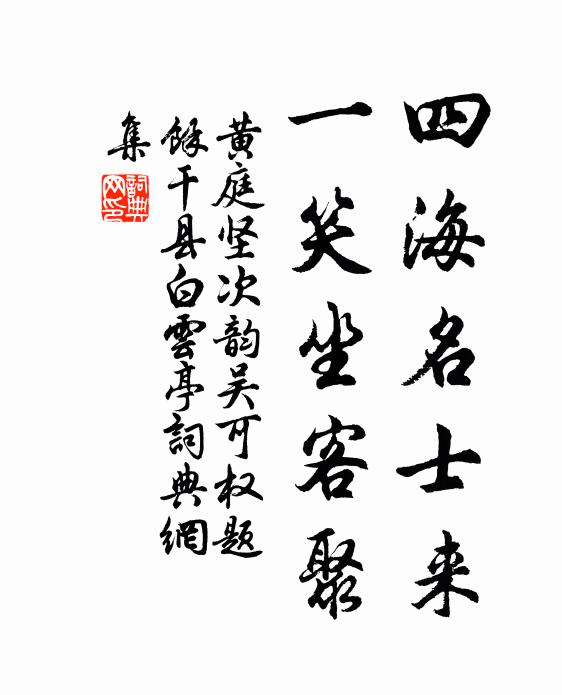 四海名士来
一笑坐客聚
黄庭坚次韵吴可权题
馀干县白雲亭詞典網
集
詞典
网印